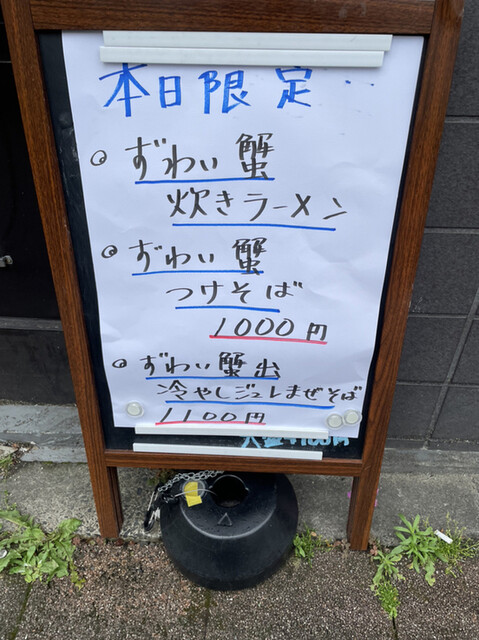 本日限定‥
◎ずわい蟹
炊きラーメン
◎ずわい蟹
つけそば
1000円
◎ずわい蟹出
冷やしジュレまぜそば
1100円